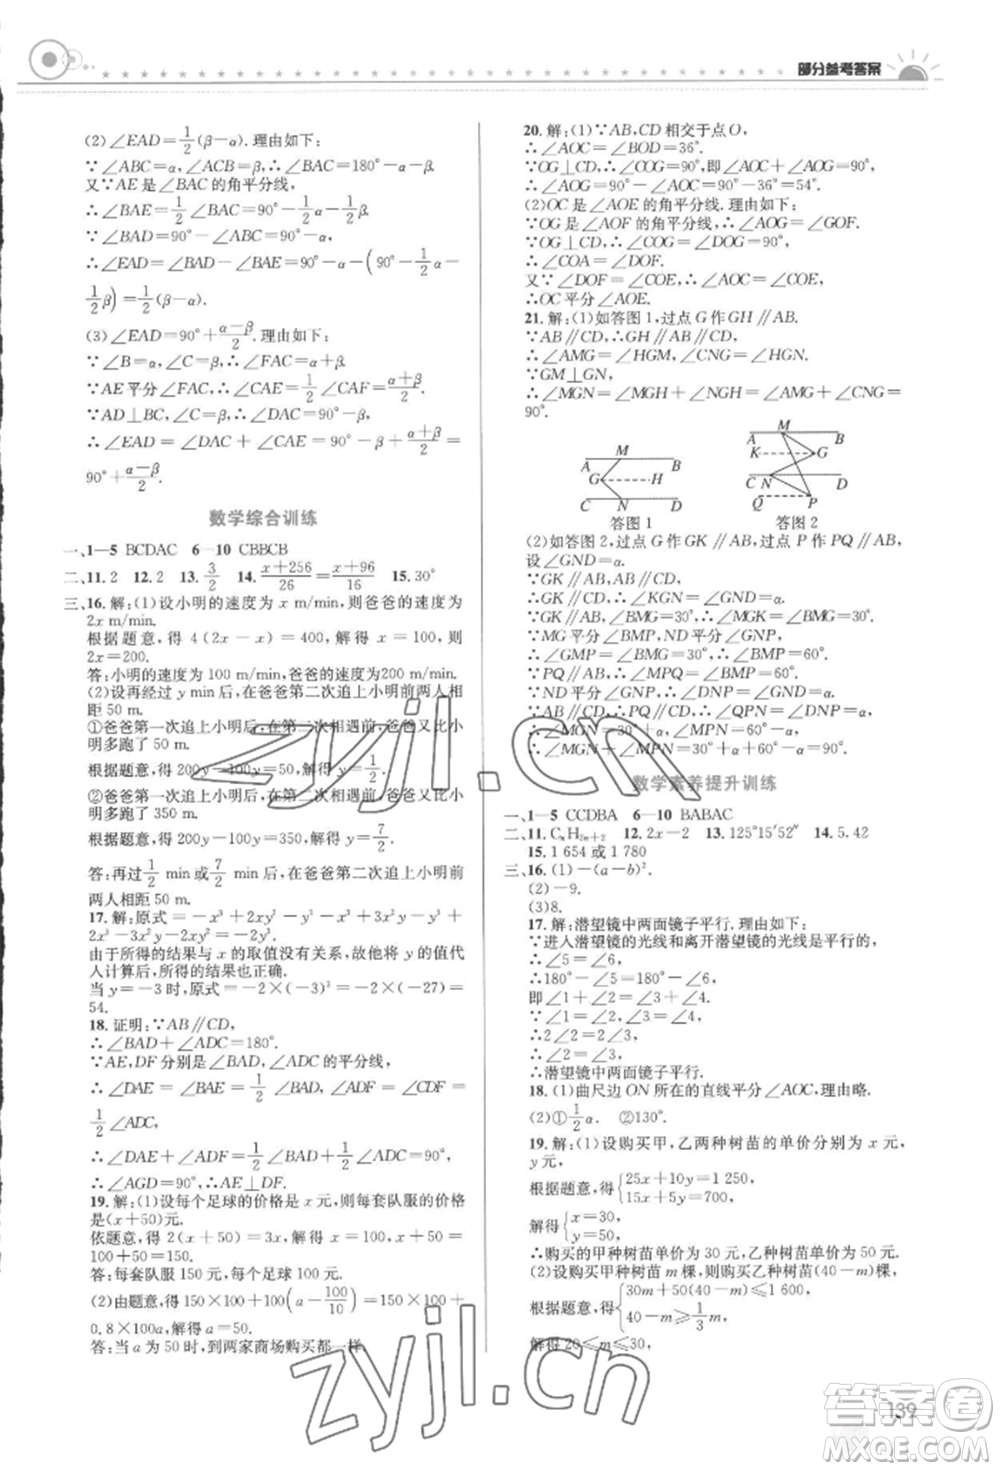 部分参考答案
(2)∠EAD=1/2(β-α).理由如下:
∵∠ABC=α,∠ACB=β,∴∠BAC=180°-α-β.
又∵AE是∠BAC的角平分线,
∴∠BAE=1/2∠BAC=90°-1/2α-1/2β.
∵∠BAD=90°-∠ABC=90°-α,
∴∠EAD=∠BAD-∠BAE=90°-α-(90°-1/2α-
1/2β)=1/2(β-α).
(3)∠EAD=90°+(α-β)/2.理由如下:
∵∠B=α,∠C=β,∴∠FAC=α+β.
∵AE平分∠FAC,∴∠CAE=1/2∠CAF=(α+β)/2.
∵AD⊥BC,∴∠DAC=90°-β.
∴∠EAD=∠DAC+∠CAE=90°-β+(α+β)/2=
90°+(α-β)/2.
数学综合训练
一、1—5 BCDAC 6—10 CBBCB
二、11.2 12.2 13.3/2 14.(x+256)/26=(x+96)/16 15.30°
三、16.解:(1)设小明的速度为x m/min,则爸爸的速度为
2x m/min.
根据题意,得4(2x-x)=400,解得x=100,则
2x=200.
答:小明的速度为100 m/min,爸爸的速度为200 m/min.
(2)设再经过y min后,在爸爸第二次追上小明前两人相
距50 m.
①爸爸第一次追上小明后,在第二次相遇前,爸爸又比小
明多跑了50 m.
根据题意,得200y-100y=50,解得y=1/2.
②爸爸第一次追上小明后,在第二次相遇前,爸爸又比小
明多跑了350 m.
根据题意,得200y-100y=350,解得y=7/2.
答:再过1/2 min或7/2 min后,在爸爸第二次追上小明前
两人相距50 m.
17.解:原式=-x³+2xy²-y³+x³-2xy²-y³=
-2y³.
由于所得的结果与x的取值没有关系,故将y的值代
人计算后,所得的结果也正确.
当y=-3时,原式=-2×(-3)³=-2×(-27)=
54.
18.证明:∵AB∥CD,
∴∠BAD+∠ADC=180°.
∵AE,DF分别是∠BAD,∠ADC的平分线,
∴∠DAE=∠BAE=1/2∠BAD,∠ADF=∠CDF=
1/2∠ADC,
∴∠DAE+∠ADF=1/2∠BAD+1/2∠ADC=90°,
∴∠AGD=90°,∴AE⊥DF.
19.解:(1)设每个足球的价格是x元,则每套队服的价格
是(x+50)元.
依题意,得2(x+50)=3x,解得x=100,
∴x+50=150.
答:每套队服150元,每个足球100元.
(2)由题意,得150×100+100(a-100/10)=(150×100+100a)×
0.8×100,解得a=50.
答:当a为50时,到两家商场购买都一样.
20.解:(1)∵AB,CD相交于点O,
∴∠AOC=∠BOD=36°.
∵OG⊥CD,∴∠COG=90°,即∠AOC+∠AOG=90°,
∴∠AOG=90°-∠AOC=90°-36°=54°.
(2)OC是∠AOE的角平分线.理由如下:
∵OG是∠AOF的角平分线,∴∠AOG=∠GOF.
∵OG⊥CD,∴∠COG=∠DOG=90°,
∴∠COA=∠DOF.
又∵∠DOF=∠COE,∴∠AOC=∠COE,
∴OC平分∠AOE.
21.解:(1)如答图1,过点G作GH∥AB.
∵AB∥CD,∴GH∥AB∥CD,
∴∠AMG=∠HGM,∠CNG=∠HGN.
∵GM⊥GN,
∴∠MGN=∠MGH+∠NGH=∠AMG+∠CNG=
90°.
A M B
G H
C N D
答图1
A M B
K G
C N D
Q P
答图2
(2)如答图2,过点G作GK∥AB,过点P作PQ∥AB,
设∠GND=α.
∵GK∥AB,AB∥CD,∴GK∥CD,
∴∠KGN=∠GND=α.
∵GK∥AB,∠BMG=30°,∴∠MGK=∠BMG=30°.
∵MG平分∠BMP,ND平分∠GNP,
∴∠GMP=∠BMG=30°,∴∠BMP=60°.
∵PQ∥AB,∴∠MPQ=∠BMP=60°.
∵ND平分∠GNP,∴∠DNP=∠GND=α.
∵AB∥CD,∴PQ∥CD,∴∠QPN=∠DNP=α,
∴∠MGN=30°+α,∠MPN=60°-α,
∴∠MGN+∠MPN=30°+α+60°-α=90°.
数学素养提升训练
一、1—5 CCDBA 6—10 BABAC
二、11.CₙH₂ₙ₊₂ 12.2x-2 13.125°15′52″ 14.5.42
15.1 654或1 780
三、16.(1)-(a-b)².
(2)-9.
(3)8.
17.解:潜望镜中两面镜子平行.理由如下:
∵进入潜望镜的光线和离开潜望镜的光线是平行的,
∴∠5=∠6,
∴180°-∠5=180°-∠6,
即∠1+∠2=∠3+∠4,
∴2∠2=2∠3,
∴∠2=∠3,
∴潜望镜中两面镜子平行.
18.(1)曲尺边ON所在的直线平分∠AOC,理由略.
(2)①1/2α. ②130°.
19.解:(1)设购买甲,乙两种树苗的单价分别为x元,
y元.
根据题意,得{25x+10y=1 250, 15x+5y=700,
解得{x=30, y=50,
∴购买的甲种树苗单价为30元,乙种树苗单价为50元.
(2)设购买甲种树苗m棵,则购买乙种树苗(40-m)棵,
根据题意,得{30m+50(40-m)≤1 600, 40-m≥1/3m,
解得20≤m≤30,
139
zyjl.cn
zyjl.cn
答案圈
MXQE.COM